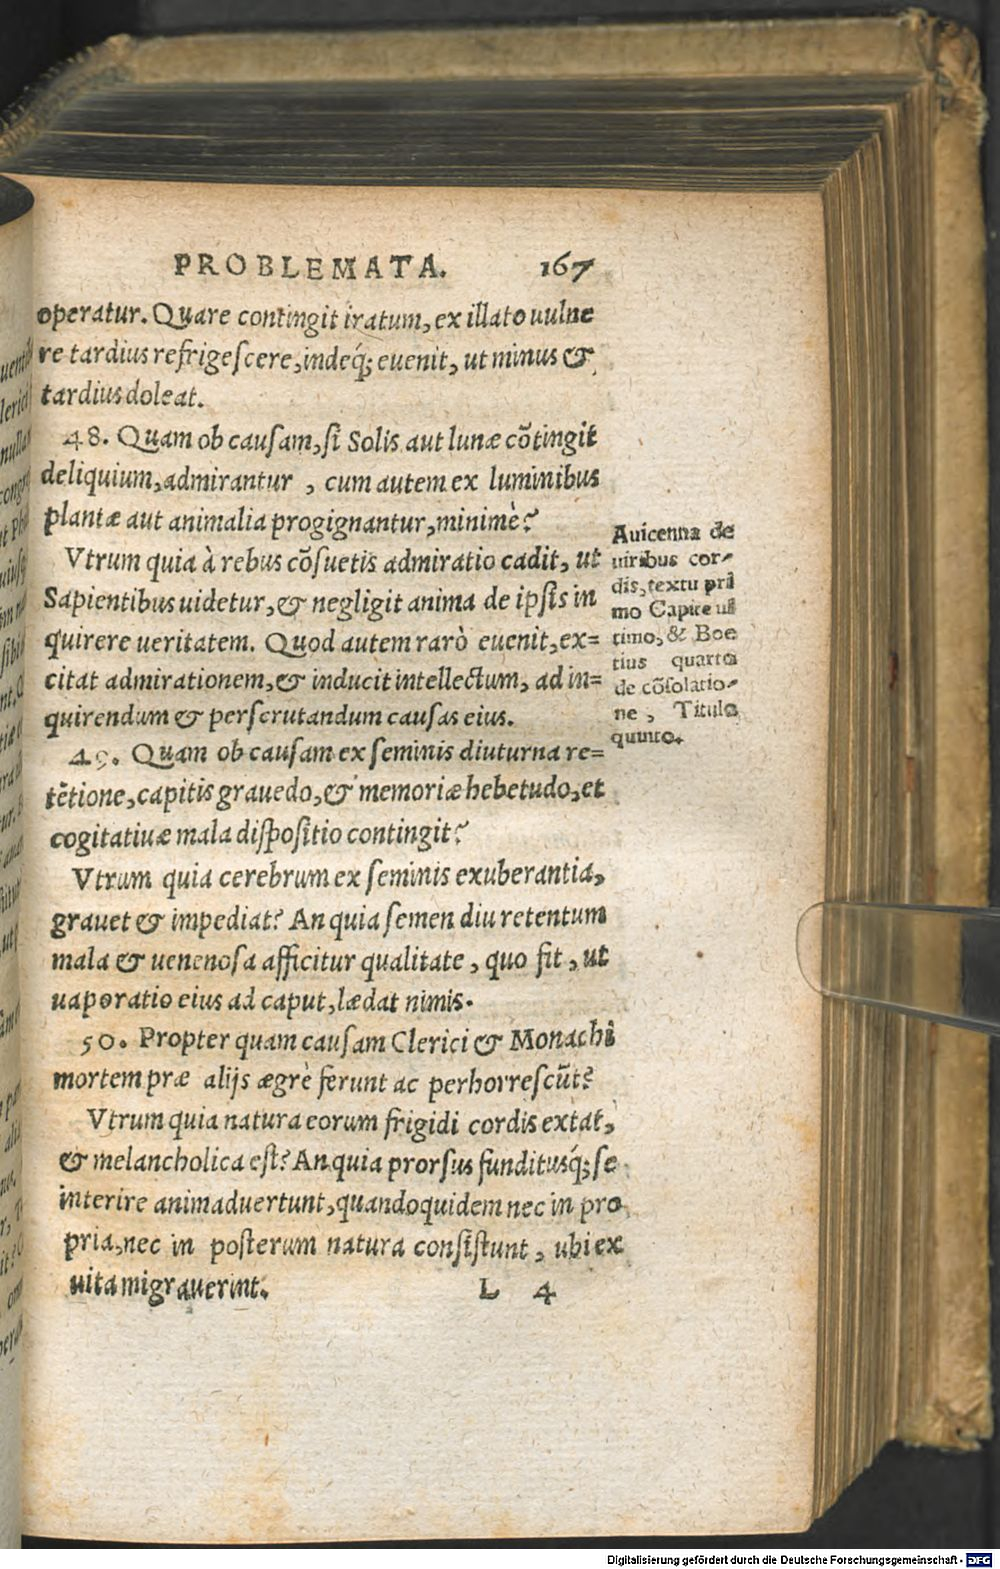 PROBLEMATA. 167
operatur. Quare contingit iratum, ex illato uulne
re tardius refrigescere, indeq́; euenit, ut minus &
tardius doleat.
48. Quam ob causam, si Solis aut lunæ cōtingit
deliquium, admirantur , cum autem ex luminibus
plantæ aut animalia progignantur, minimè?
Vtrum quia à rebus cōsuetis admiratio cadit, ut
Sapientibus uidetur, & negligit anima de ipsis in
quirere ueritatem. Quod autem rarò euenit, ex=
citat admirationem, & inducit intellectum, ad in=
quirendum & perscrutandum causas eius.
49. Quam ob causam ex seminis diuturna re=
tētione, capitis grauedo, & memoriæ hebetudo, et
cogitatiuæ mala dispositio contingit?
Vtrum quia cerebrum ex seminis exuberantia,
grauet & impediat? An quia semen diu retentum
mala & uenenosa afficitur qualitate , quo fit , ut
uaporatio eius ad caput, lædat nimis.
50. Propter quam causam Clerici & Monachi
mortem præ alijs ægrè ferunt ac perhorrescūt?
Vtrum quia natura eorum frigidi cordis extat,
& melancholica est? An quia prorsus funditusq́; se
interire animaduertunt, quandoquidem nec in pro
pria, nec in posterum natura consistunt , ubi ex
uita migrauerint. L 4
Auicenna de
uiribus cor-
dis, textu pri
mo Capite ul
timo, & Boe
tius quarto
de cōsolatio-
ne , Titulo
quinto.
Digitalisierung gefördert durch die Deutsche Forschungsgemeinschaft - DFG